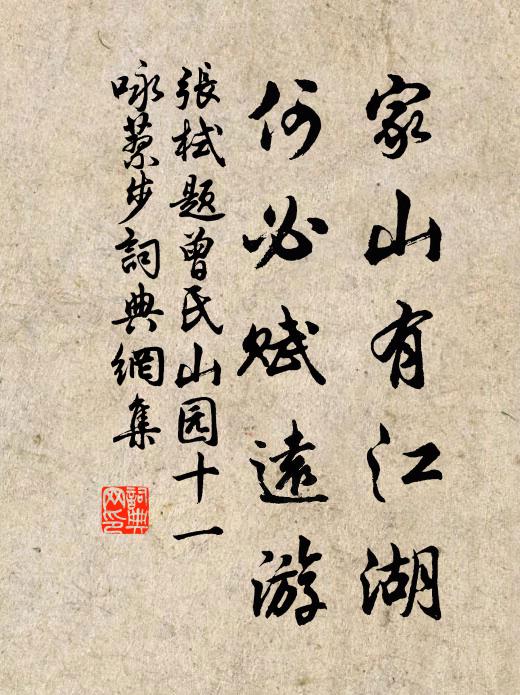 家山有江湖
何必赋遠游
張栻題曾氏山园十一
咏蔡步詞典網集
詞典網印